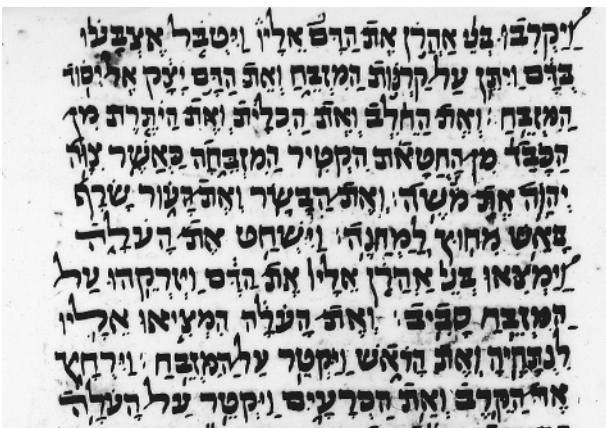 וַיַּקְרִבוּ בְּנֵי אַהֲרֹן אֶת הַדָּם אֵלָיו וַיִּטְבֹּל אֶצְבָּעוֹ
בַּדָּם וַיִּתֵּן עַל קַרְנוֹת הַמִּזְבֵּחַ וְאֶת הַדָּם יָצַק אֶל יְסוֹד
הַמִּזְבֵּחַ וְאֶת הַחֵלֶב וְאֶת הַכְּלָיֹת וְאֶת הַיֹּתֶרֶת מִן
הַכָּבֵד מִן הַחַטָּאת הִקְטִיר הַמִּזְבֵּחָה כַּאֲשֶׁר צִוָּה
יְהוָה אֶת מֹשֶׁה וְאֶת הַבָּשָׂר וְאֶת הָעוֹר שָׂרַף
בָּאֵשׁ מִחוּץ לַמַּחֲנֶה וַיִּשְׁחַט אֶת הָעֹלָה
וַיַּמְצִאוּ בְּנֵי אַהֲרֹן אֵלָיו אֶת הַדָּם וַיִּזְרְקֵהוּ עַל
הַמִּזְבֵּחַ סָבִיב וְאֶת הָעֹלָה הִמְצִיאוּ אֵלָיו
לִנְתָחֶיהָ וְאֶת הָרֹאשׁ וַיַּקְטֵר עַל הַמִּזְבֵּחַ וַיִּרְחַץ
אֶת הַקֶּרֶב וְאֶת הַכְּרָעָיִם וַיַּקְטֵר עַל הָעֹלָה